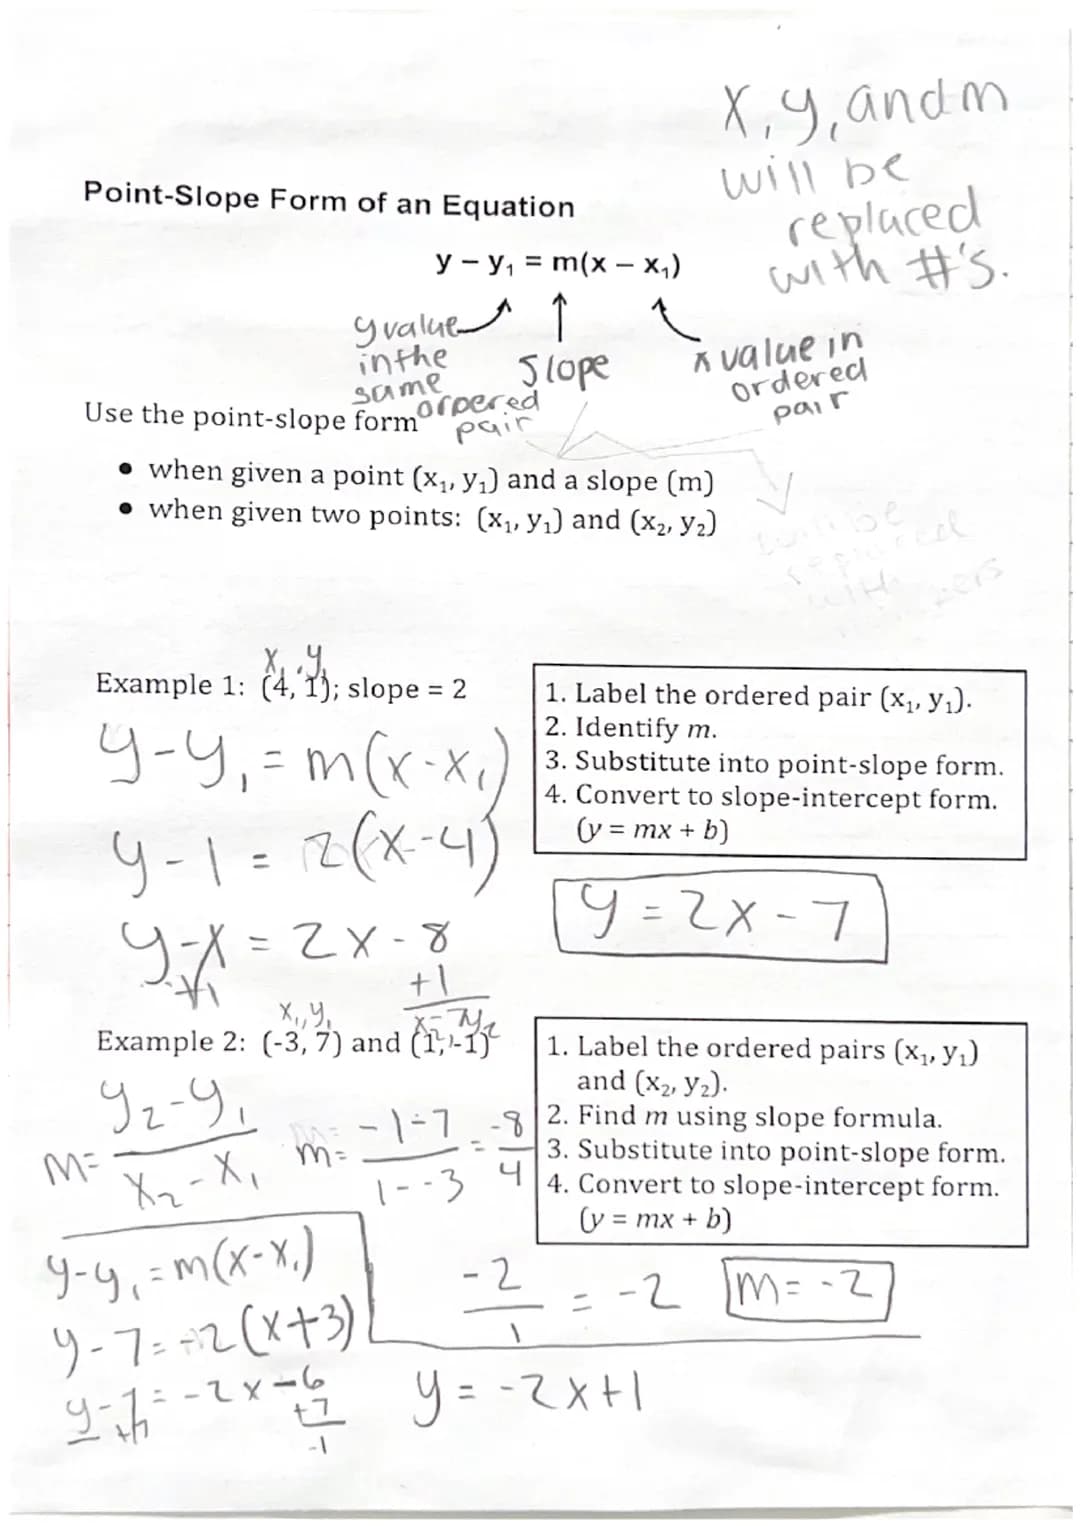 x, y, and m
will be
replaced
with #'s.
Point-Slope Form of an Equation
y – y₁ = m(x – x₁)
y value
in the
same
orpered
pair
Slope
x value in
ordered
pair
Use the point-slope form
• when given a point (x₁, y₁) and a slope (m)
• when given two points: (x₁, y₁) and (x₂, y₂)
will be
replaced
with
x₁, y₁
Example 1: (4, 1); slope = 2
y-y₁ = m(x-x₁)
y-1 = 2(x-4)
y-1 = 2x-8
+1 +1
-7
1. Label the ordered pair (x₁, y₁).
2. Identify m.
3. Substitute into point-slope form.
4. Convert to slope-intercept form.
(y = mx + b)
y = 2x - 7
x₁, y₁ x₂ y₂
Example 2: (-3, 7) and (1, -1)
m= y₂-y₁ / x₂-x₁ m= -1-7 / 1--3 = -8 / 4
1. Label the ordered pairs (x₁, y₁)
and (x₂, y₂).
2. Find m using slope formula.
3. Substitute into point-slope form.
4. Convert to slope-intercept form.
(y = mx + b)
-2 / 1 = -2 m= -2
y-y₁ = m(x-x₁)
y-7 = -2(x+3)
y-7 = -2x-6
+7 +7
-1
y = -2x+1